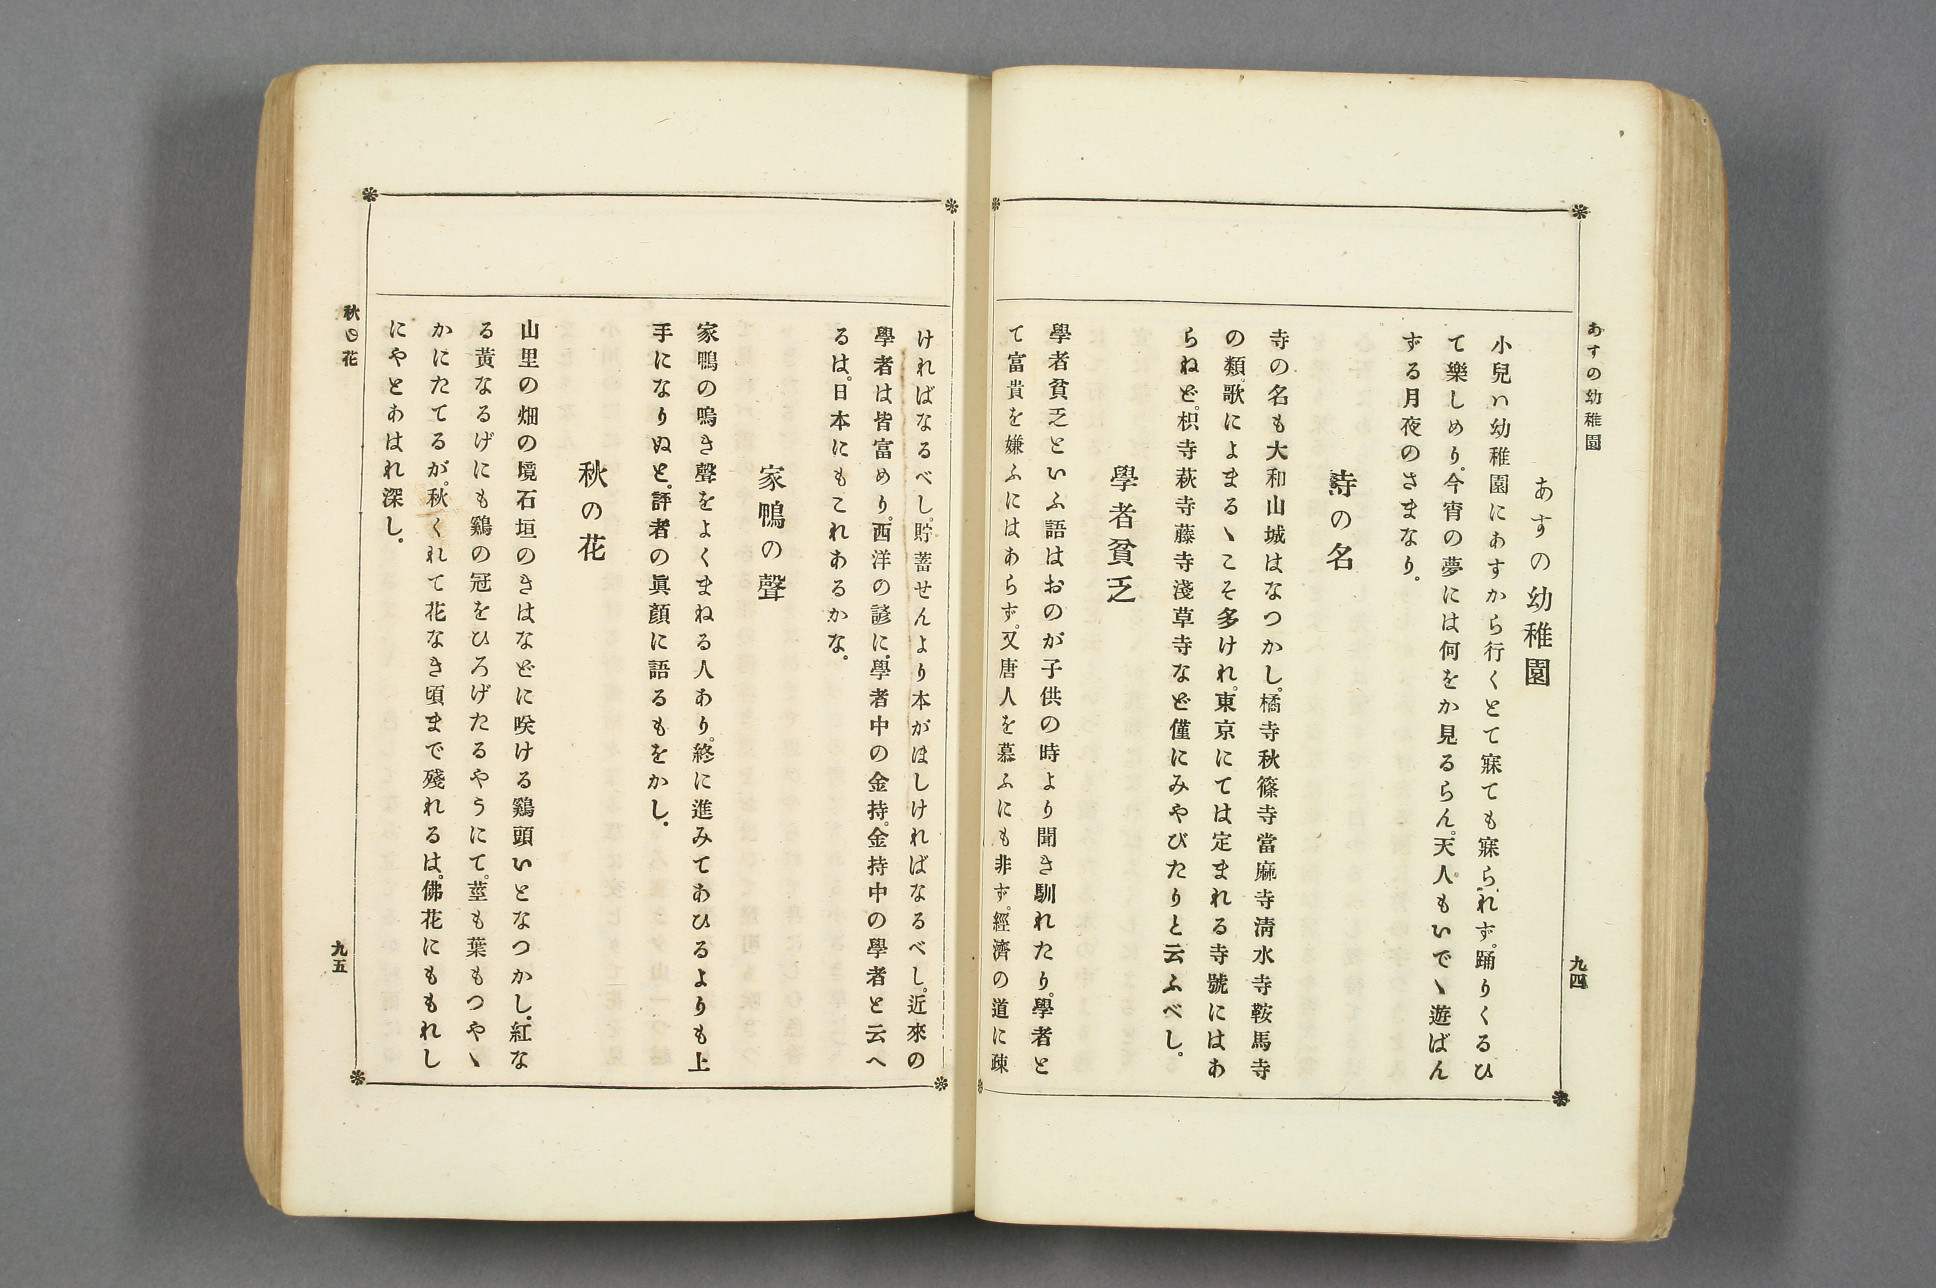 あすの幼稚園
九四
あすの幼稚園
小兒ハ幼稚園にあすから行くとて寐ても寐られず。踊りくるひ
て樂しめり。今宵の夢には何をか見るらん。天人もいでヽ遊ばん
ずる月夜のさまなり。
寺の名
寺の名も大和山城はなつかし。橘寺秋篠寺當麻寺淸水寺鞍馬寺
の類。歌によまるヽこそ多けれ。東京にては定まれる寺號にはあ
らねど。枳寺萩寺藤寺淺草寺など僅にみやびたりと云ふべし。
學者貧乏
學者貧乏といふ語はおのが子供の時より聞き馴れたり。學者と
て富貴を嫌ふにはあらず。又唐人を慕ふにも非ず。經濟の道に疎
ければなるべし。貯蓄せんより本がほしければなるべし。近來の
學者は皆富めり。西洋の諺に。學者中の金持。金持中の學者と云へ
るは。日本にもこれあるかな。
家鴨の聲
家鴨の鳴き聲をよくまねる人あり。終に進みてあひるよりも上
手になりぬと。評者の眞顏に語るもをかし。
秋の花
山里の畑の境石垣のきはなどに咲ける鷄頭いとなつかし。紅な
る黃なるげにも鷄の冠をひろげたるやうにて。莖も葉もつやヽ
かにたてるが。秋くれて花なき頃まで殘れるは。佛花にももれし
にやとあはれ深し。
秋の花
九五